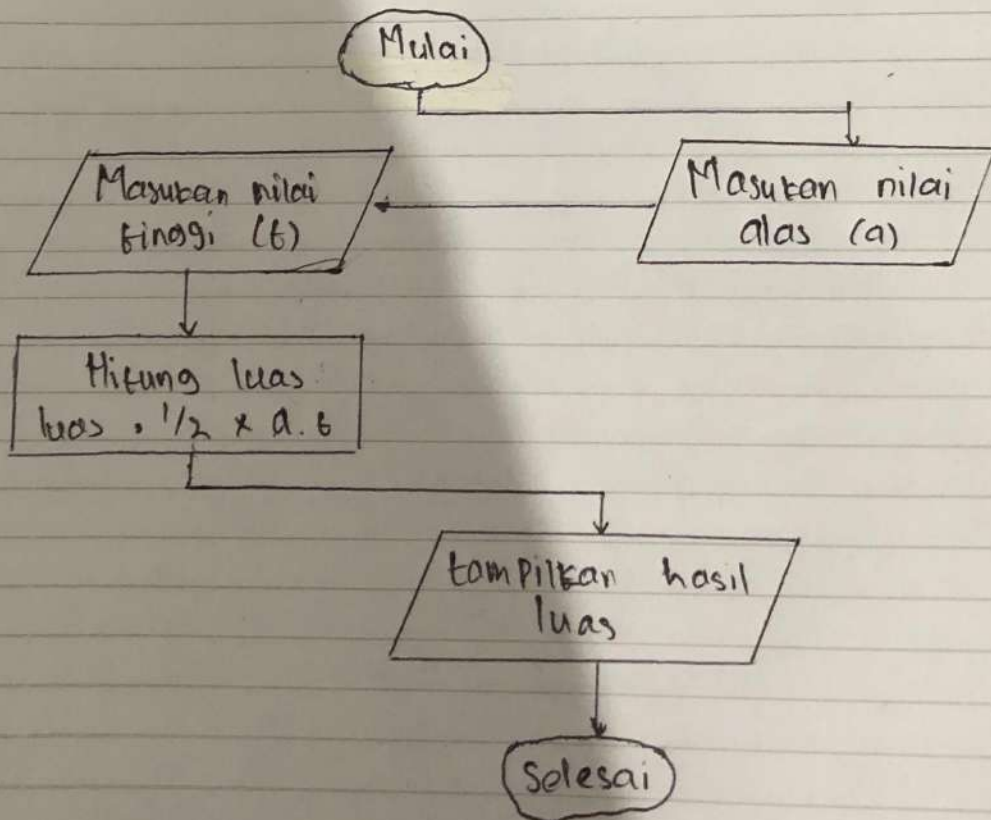 Mulai
Masukan nilai
alas (a)
Masukan nilai
tinggi (t)
Hitung luas
luas = 1/2 x a.t
tampilkan hasil
luas
Selesai